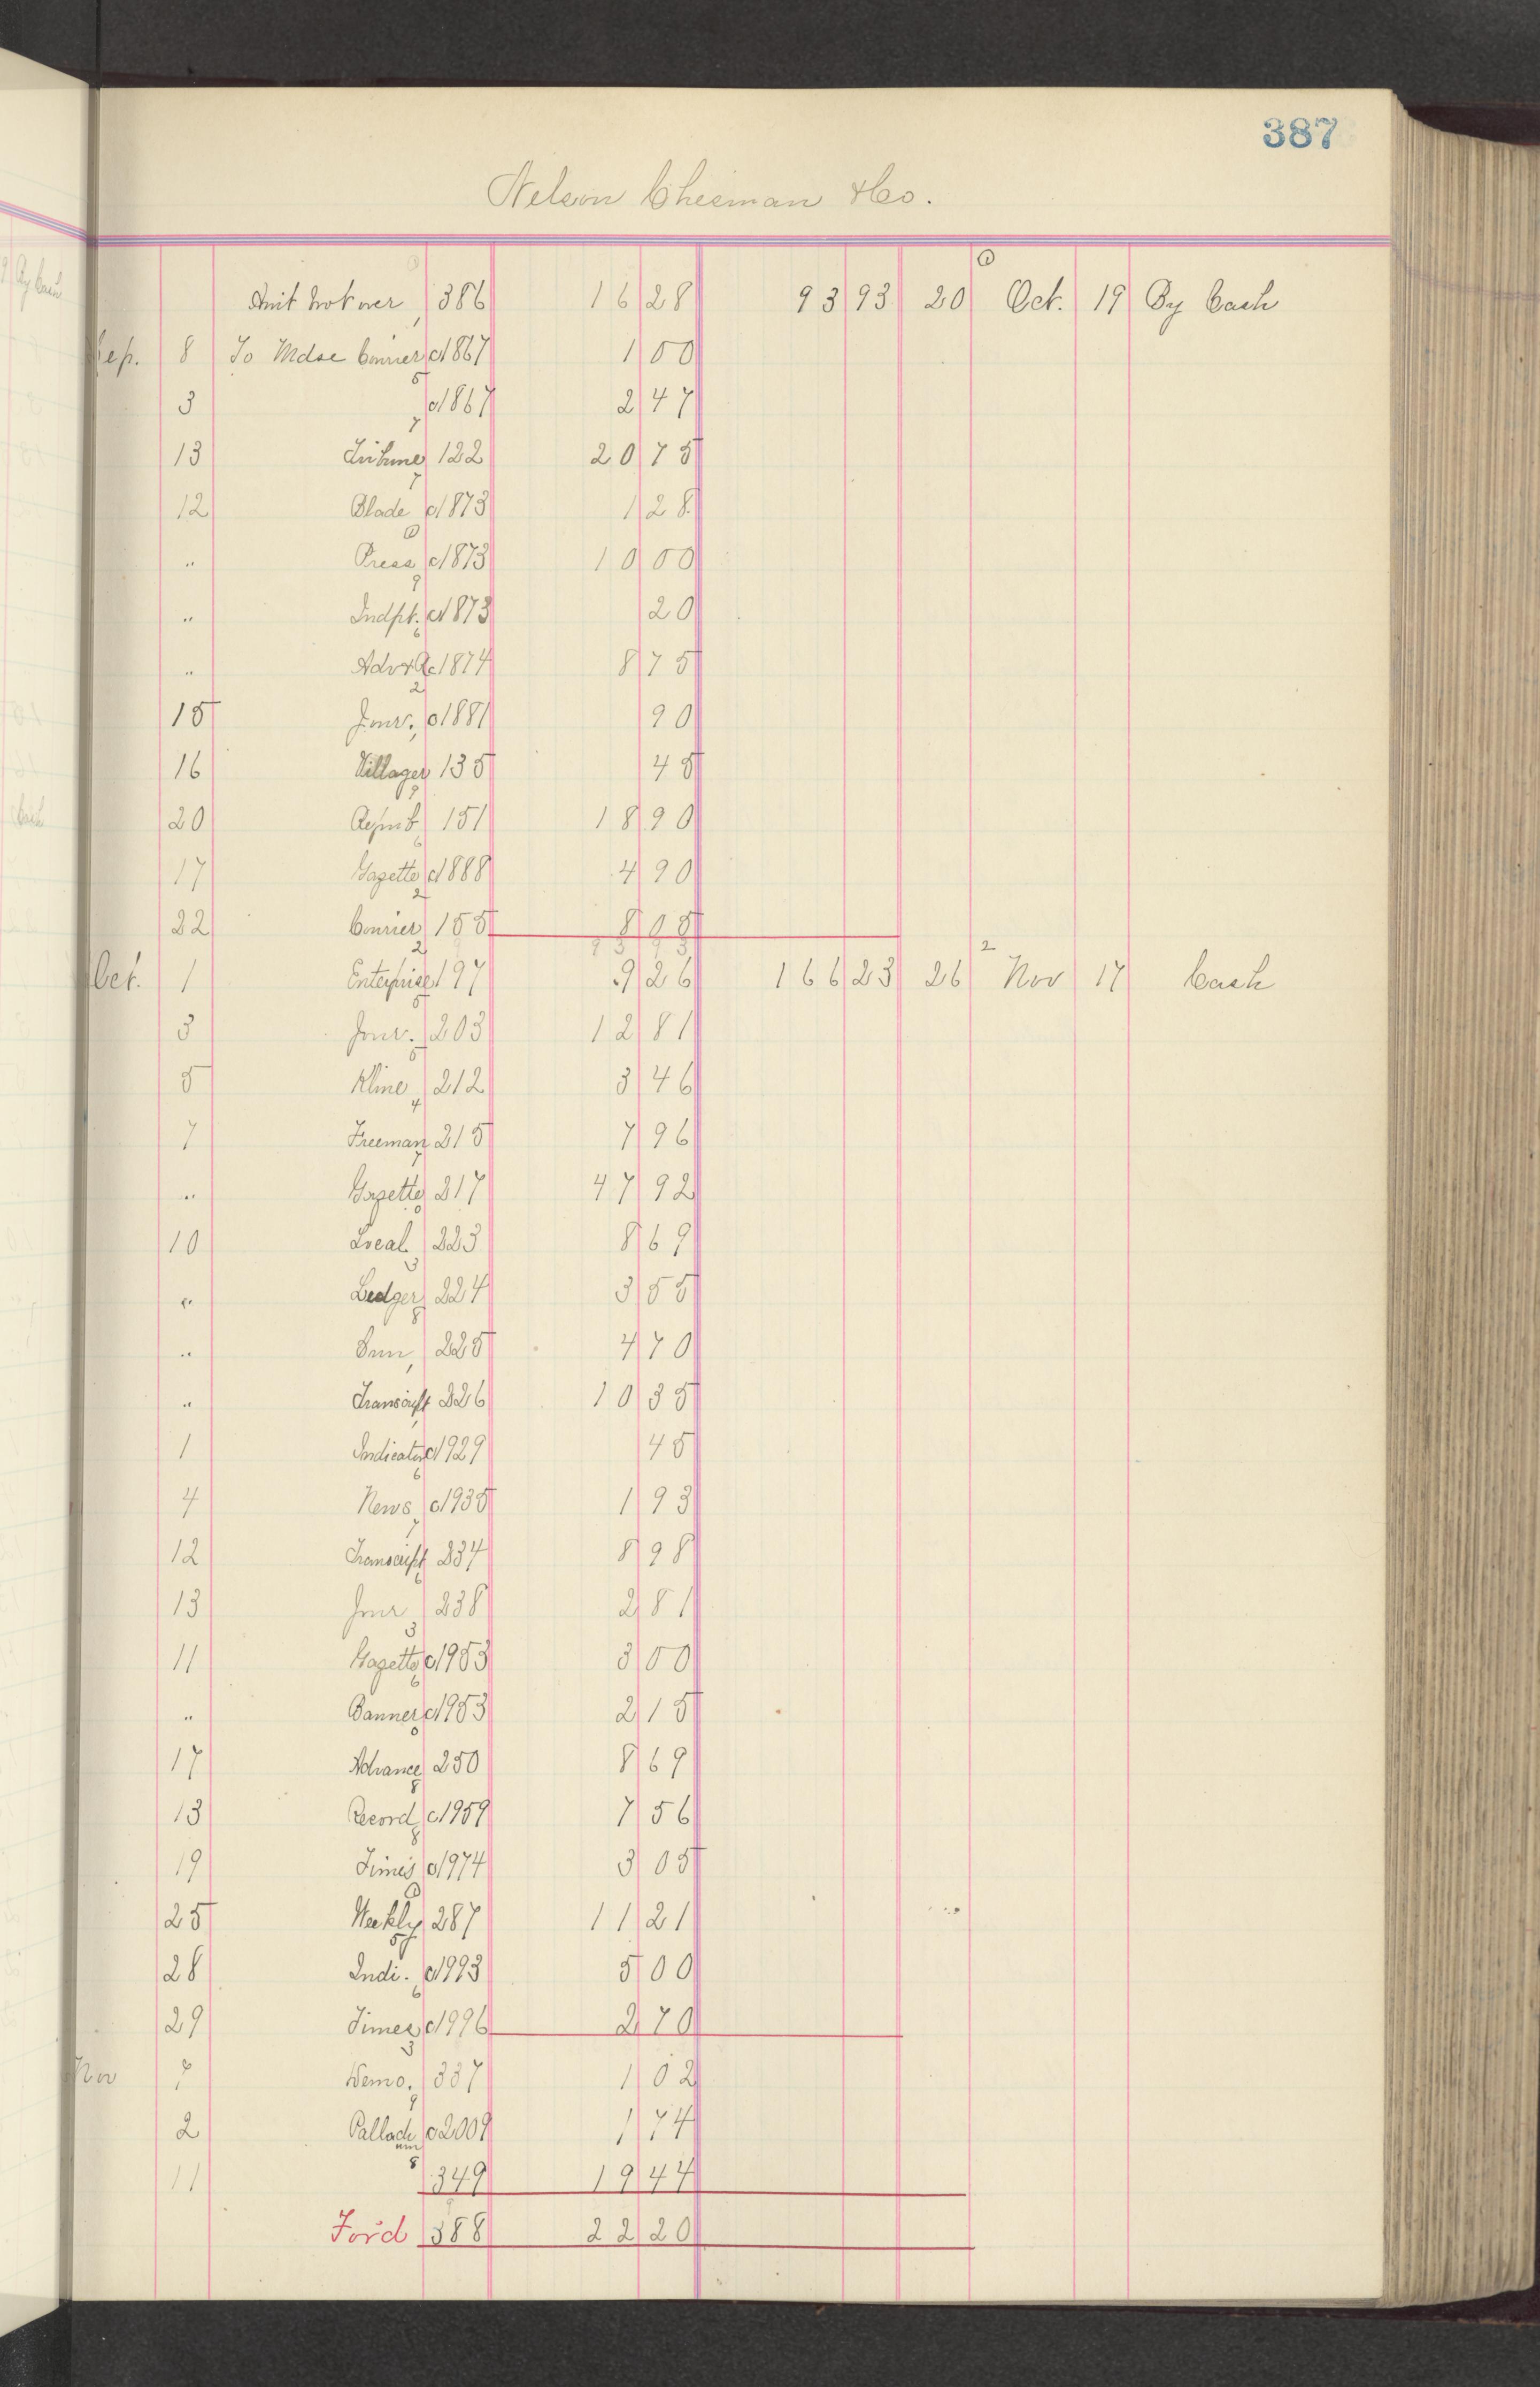 387
Nelson Chesman & Co.
Amt brot over 386 16 28 93 93 20 Oct. 19 By Cash
Sep. 8 To Mdse Courier c1867 1 00
3 c1867 2 47
13 Tribune 122 20 75
12 Blade c1873 1 28
" Press c1873 10 00
" Indpt. c1873 20
" Adv & R c1874 8 75
15 Jour. c1881 90
16 Villager 135 45
20 Repub 151 18 90
17 Gazette c1888 4 90
22 Courier 155 8 05
Oct. 1 Enterprise 197 9 26 166 23 26 Nov 17 Cash
3 Jour. 203 12 81
5 Kline 212 3 46
7 Freeman 215 7 96
" Gazette 217 47 92
10 Local 223 8 69
" Ledger 224 3 55
" Sun 225 4 70
" Transcript 226 10 35
1 Indicator c1929 45
4 News c1935 1 93
12 Transcript 234 8 98
13 Jour 238 2 81
11 Gazette c1953 3 00
" Banner c1953 2 15
17 Advance 250 8 69
13 Record c1959 7 56
19 Times c1974 3 05
25 Weekly 287 11 21
28 Indi. c1993 5 00
29 Times c1996 2 70
Nov 7 Demo. 337 1 02
2 Pallad c2009 1 74
11 349 19 44
For'd 388 22 20